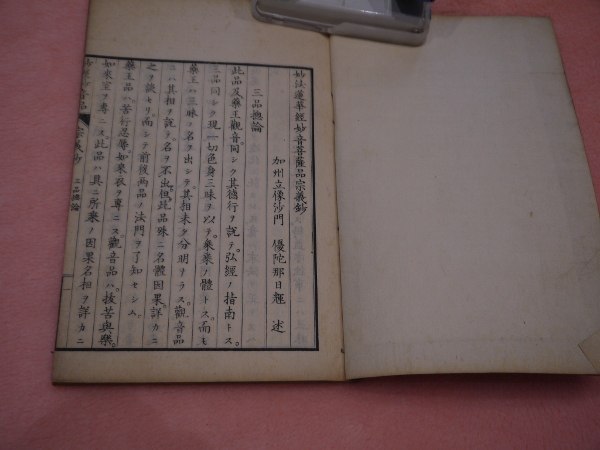 妙法蓮華経妙音菩薩品宗義鈔
加州立像沙門 優陀那日輝 述
三品揔論
此品及藥王觀音同シク其德行ヲ説テ弘經ノ指南トス。
三品同シク現一切色身三昧ヲ以テ衆乘ノ體トス。而モ
藥王ハ三昧ノ名ヲ出シテ其相未タ分明ナラス。觀音品
ハ其相ヲ説テ名ヲ不出但此品殊ニ名體因果ヲ詳カニ
之ヲ説セリ而シテ前後両品ノ法門ヲ了知セシム。
藥王品ハ苦行忍辱如來衣ヲ專ニス觀音品ハ拔苦與樂。
如來室ヲ專ニス。此品ハ具ニ所乘ノ因果名相ヲ詳カニ
三品揔論